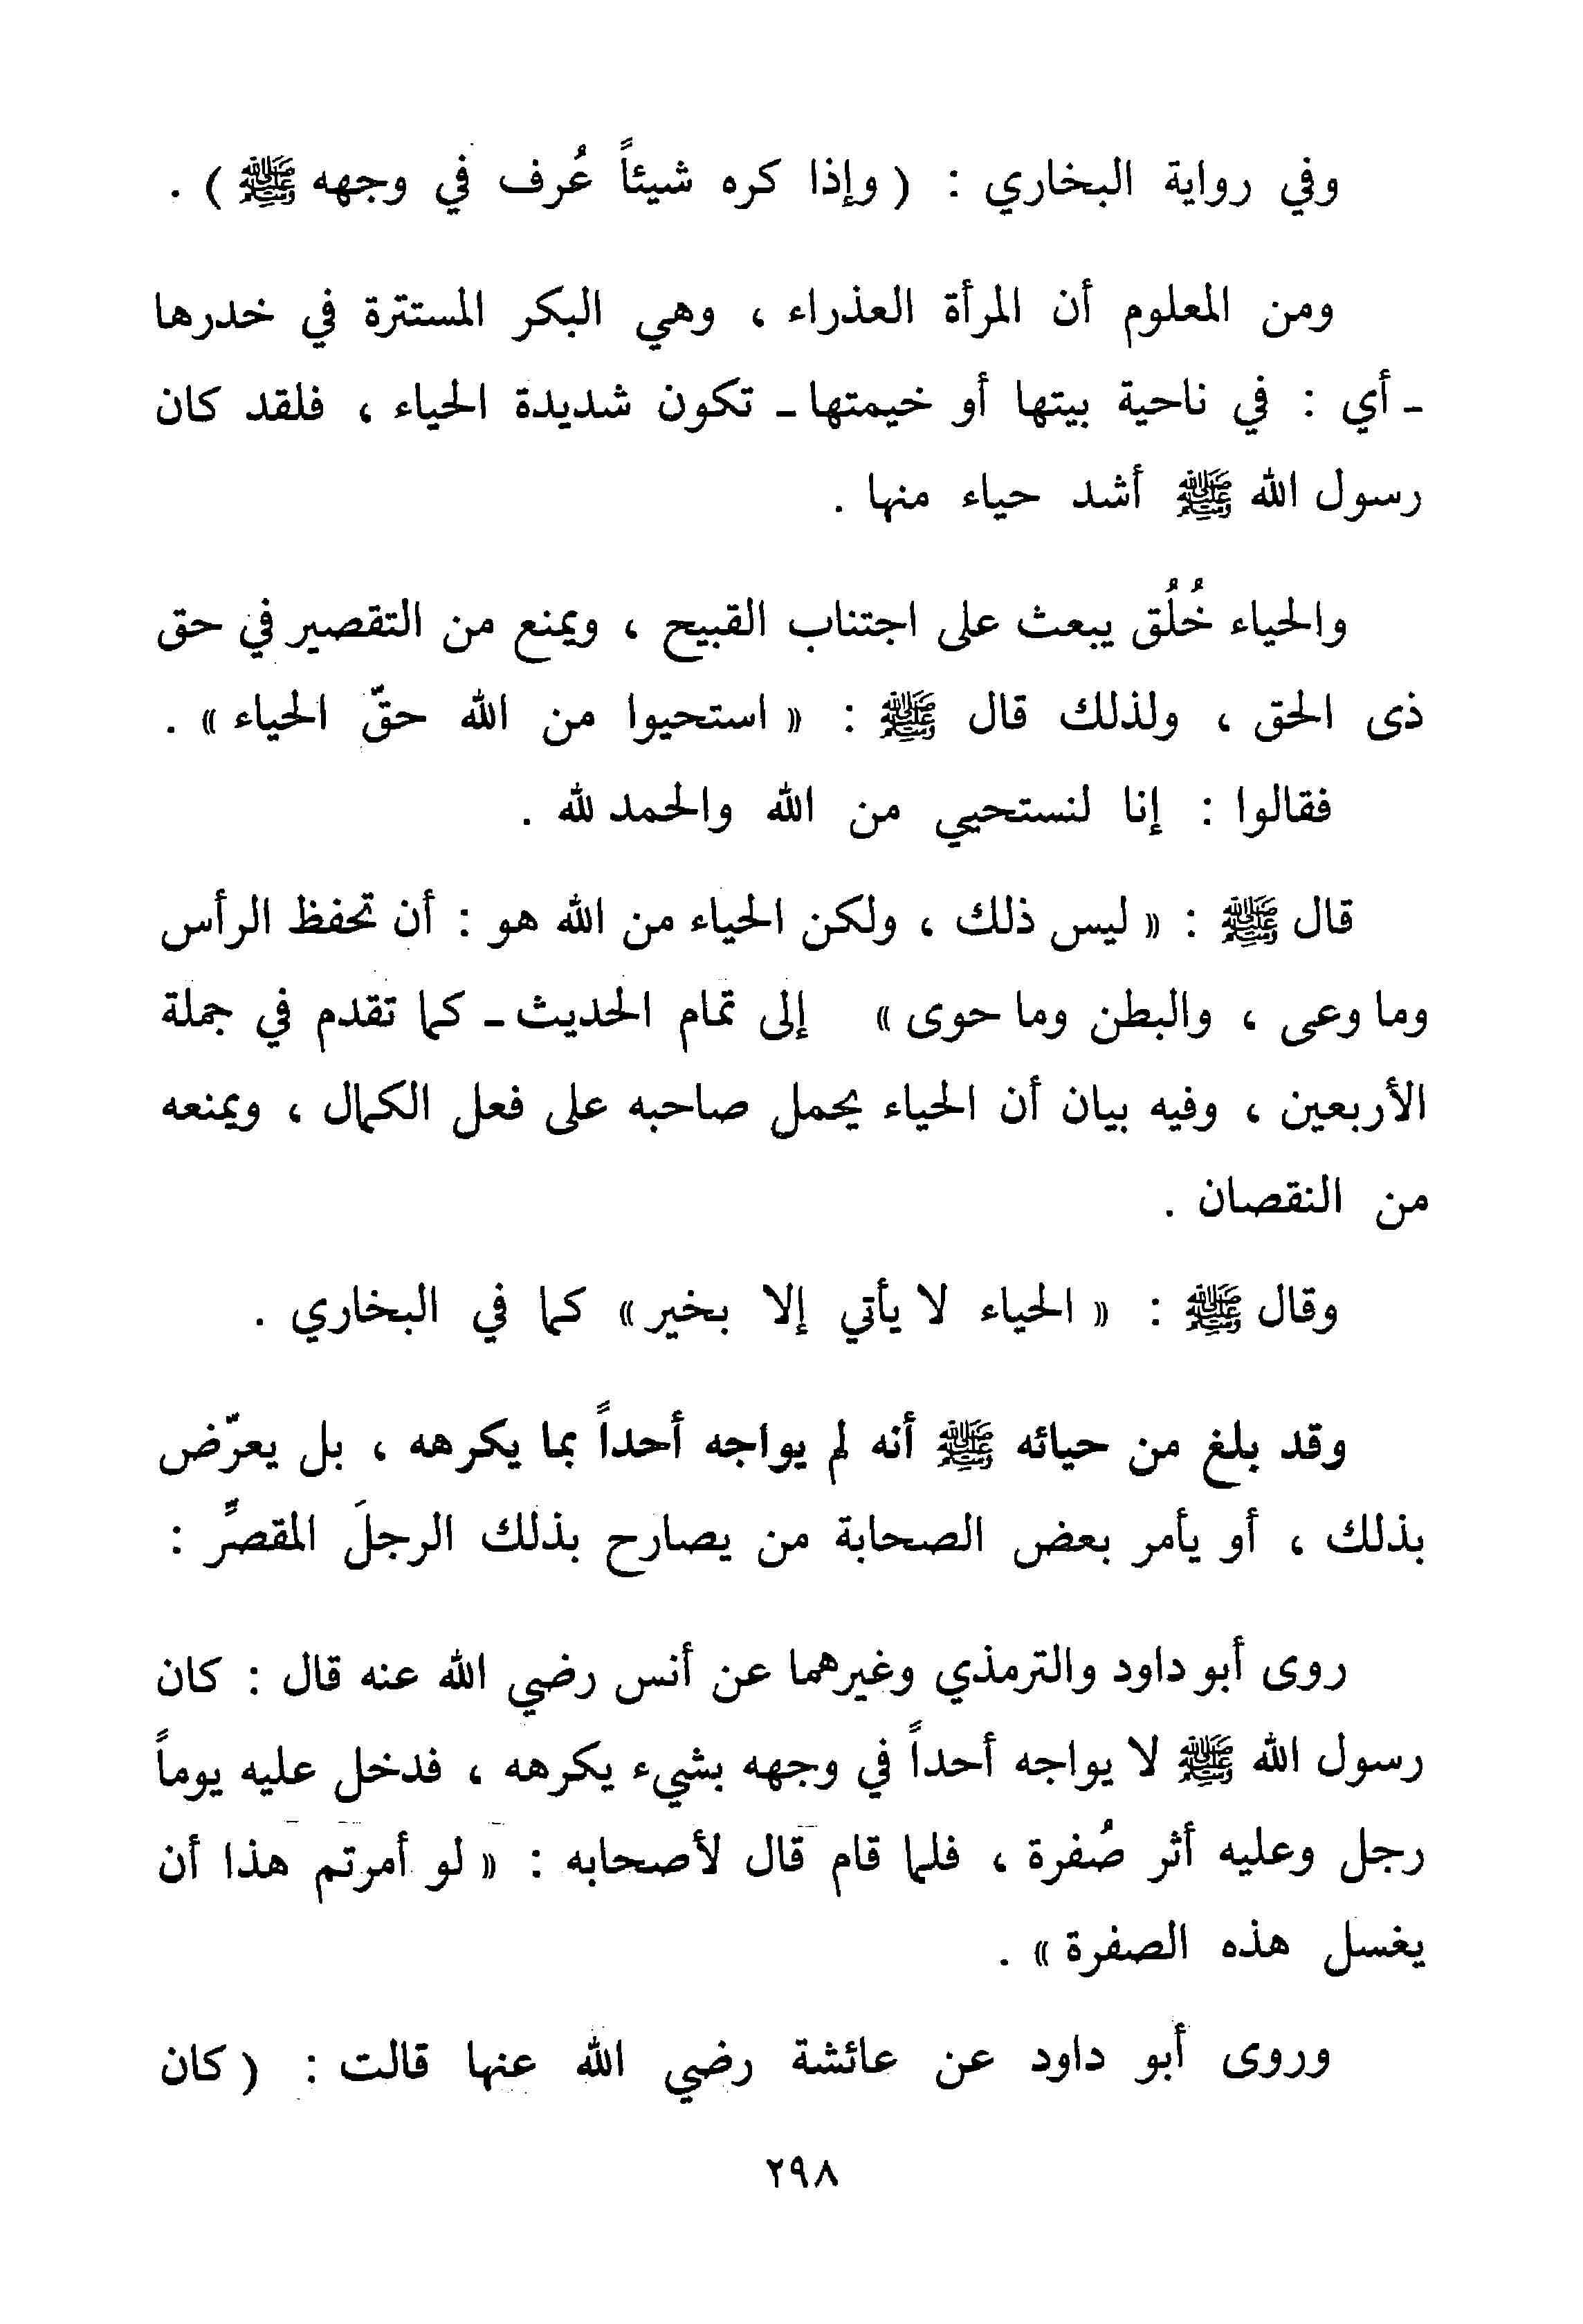 وفي رواية البخاري : ( وإذا كره شيئاً عُرف في وجهه ﷺ ) .
ومن المعلوم أن المرأة العذراء ، وهي البكر المستترة في خدرها
ـ أي : في ناحية بيتها أو خيمتها ـ تكون شديدة الحياء ، فلقد كان
رسول الله ﷺ أشد حياء منها .
والحياء خُلُق يبعث على اجتناب القبيح ، ويمنع من التقصير في حق
ذى الحق ، ولذلك قال ﷺ : « استحيوا من الله حقّ الحياء » .
فقالوا : إنا لنستحيي من الله والحمد لله .
قال ﷺ : « ليس ذلك ، ولكن الحياء من الله هو : أن تحفظ الرأس
وما وعى ، والبطن وما حوى » إلى تمام الحديث ـ كما تقدم في جملة
الأربعين ، وفيه بيان أن الحياء يحمل صاحبه على فعل الكمال ، ويمنعه
من النقصان .
وقال ﷺ : « الحياء لا يأتي إلا بخير » كما في البخاري .
وقد بلغ من حيائه ﷺ أنه لم يواجه أحداً بما يكرهه ، بل يعرّض
بذلك ، أو يأمر بعض الصحابة من يصارح بذلك الرجلَ المقصِّر :
روى أبو داود والترمذي وغيرهما عن أنس رضي الله عنه قال : كان
رسول الله ﷺ لا يواجه أحداً في وجهه بشيء يكرهه ، فدخل عليه يوماً
رجل وعليه أثر صُفرة ، فلما قام قال لأصحابه : « لو أمرتم هذا أن
يغسل هذه الصفرة » .
وروى أبو داود عن عائشة رضي الله عنها قالت : ( كان
٢٩٨